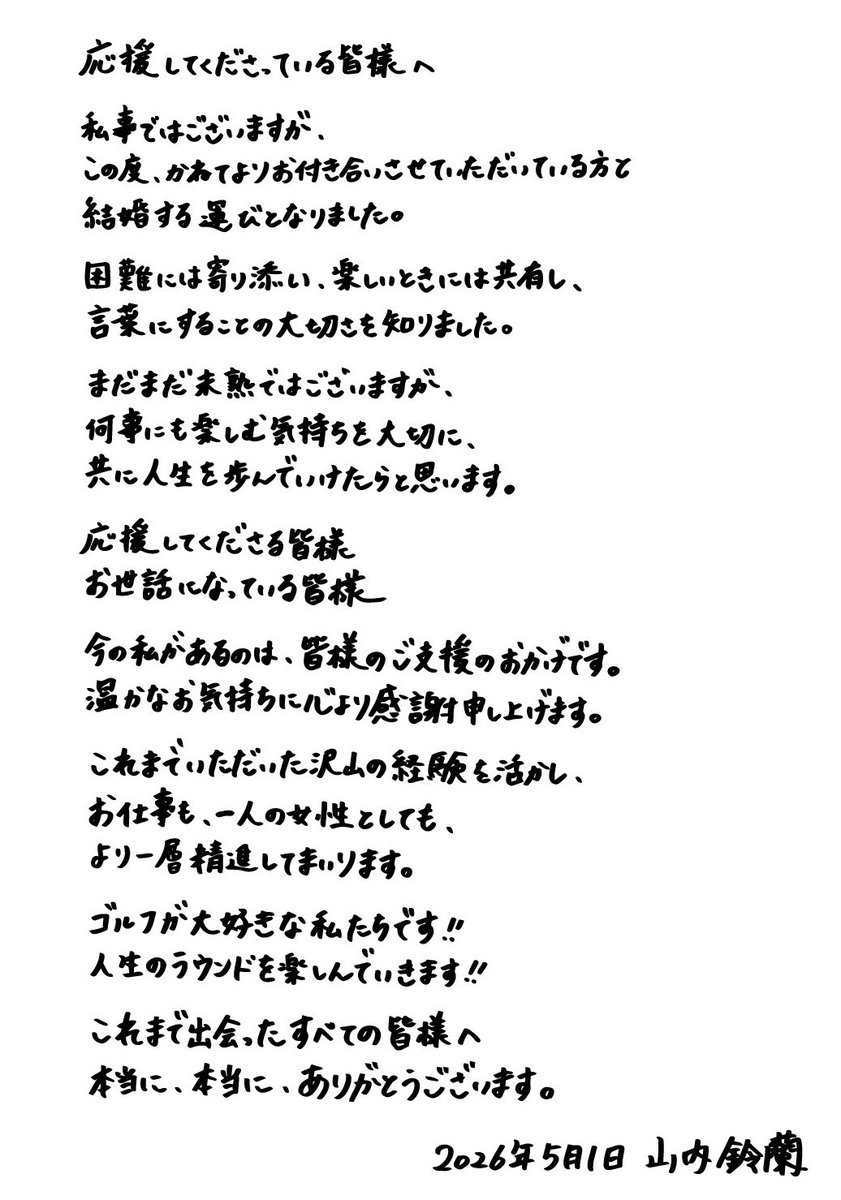 応援してくださっている皆様へ
私事ではございますが、
この度、かねてよりお付き合いさせていただいている方と
結婚する運びとなりました。
困難には寄り添い、楽しいときには共有し、
言葉にすることの大切さを知りました。
まだまだ未熟ではございますが、
何事にも楽しむ気持ちを大切に、
共に人生を歩んでいけたらと思います。
応援してくださる皆様
お世話になっている皆様
今の私があるのは、皆様のご支援のおかげです。
温かなお気持ちに心より感謝申し上げます。
これまでいただいた沢山の経験を活かし、
お仕事も、一人の女性としても、
より一層精進してまいります。
ゴルフが大好きな私たちです!!
人生のラウンドを楽しんでいきます!!
これまで出会ったすべての皆様へ
本当に、本当に、ありがとうございます。
2026年5月1日 山内鈴蘭